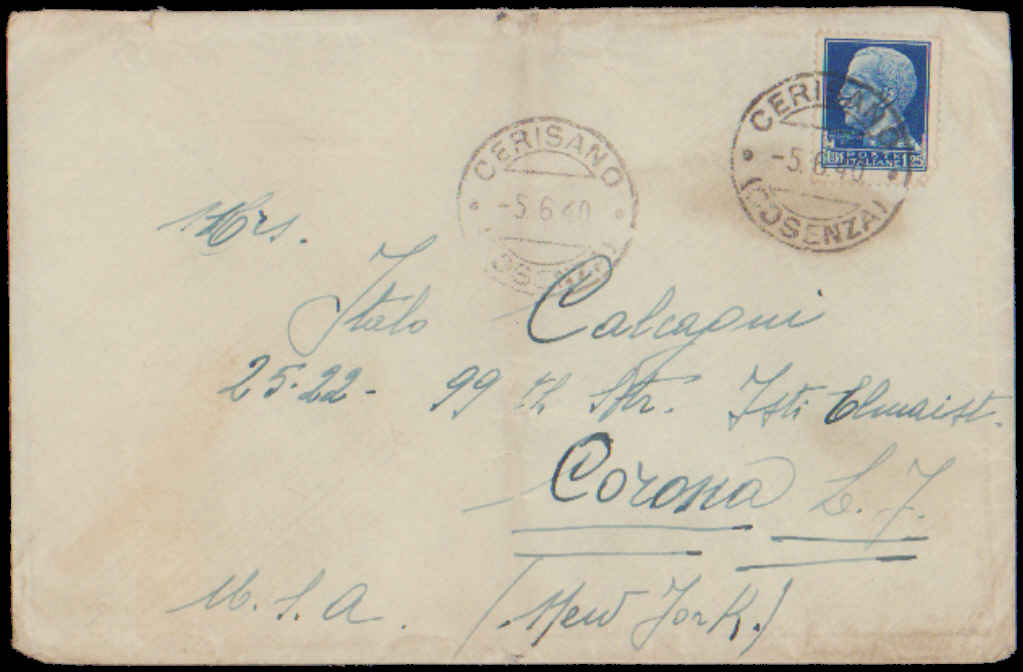 CERISANO
-5.6.40
(COSENZA)
CERISANO
-5.6.40
(COSENZA)
LIRE POSTE ITALIANE 1,25
Mrs.
Italo Calcagni
25-22- 99 th Str. Isti Elmaist.
Corona L. I.
U. S. A. (New York.)